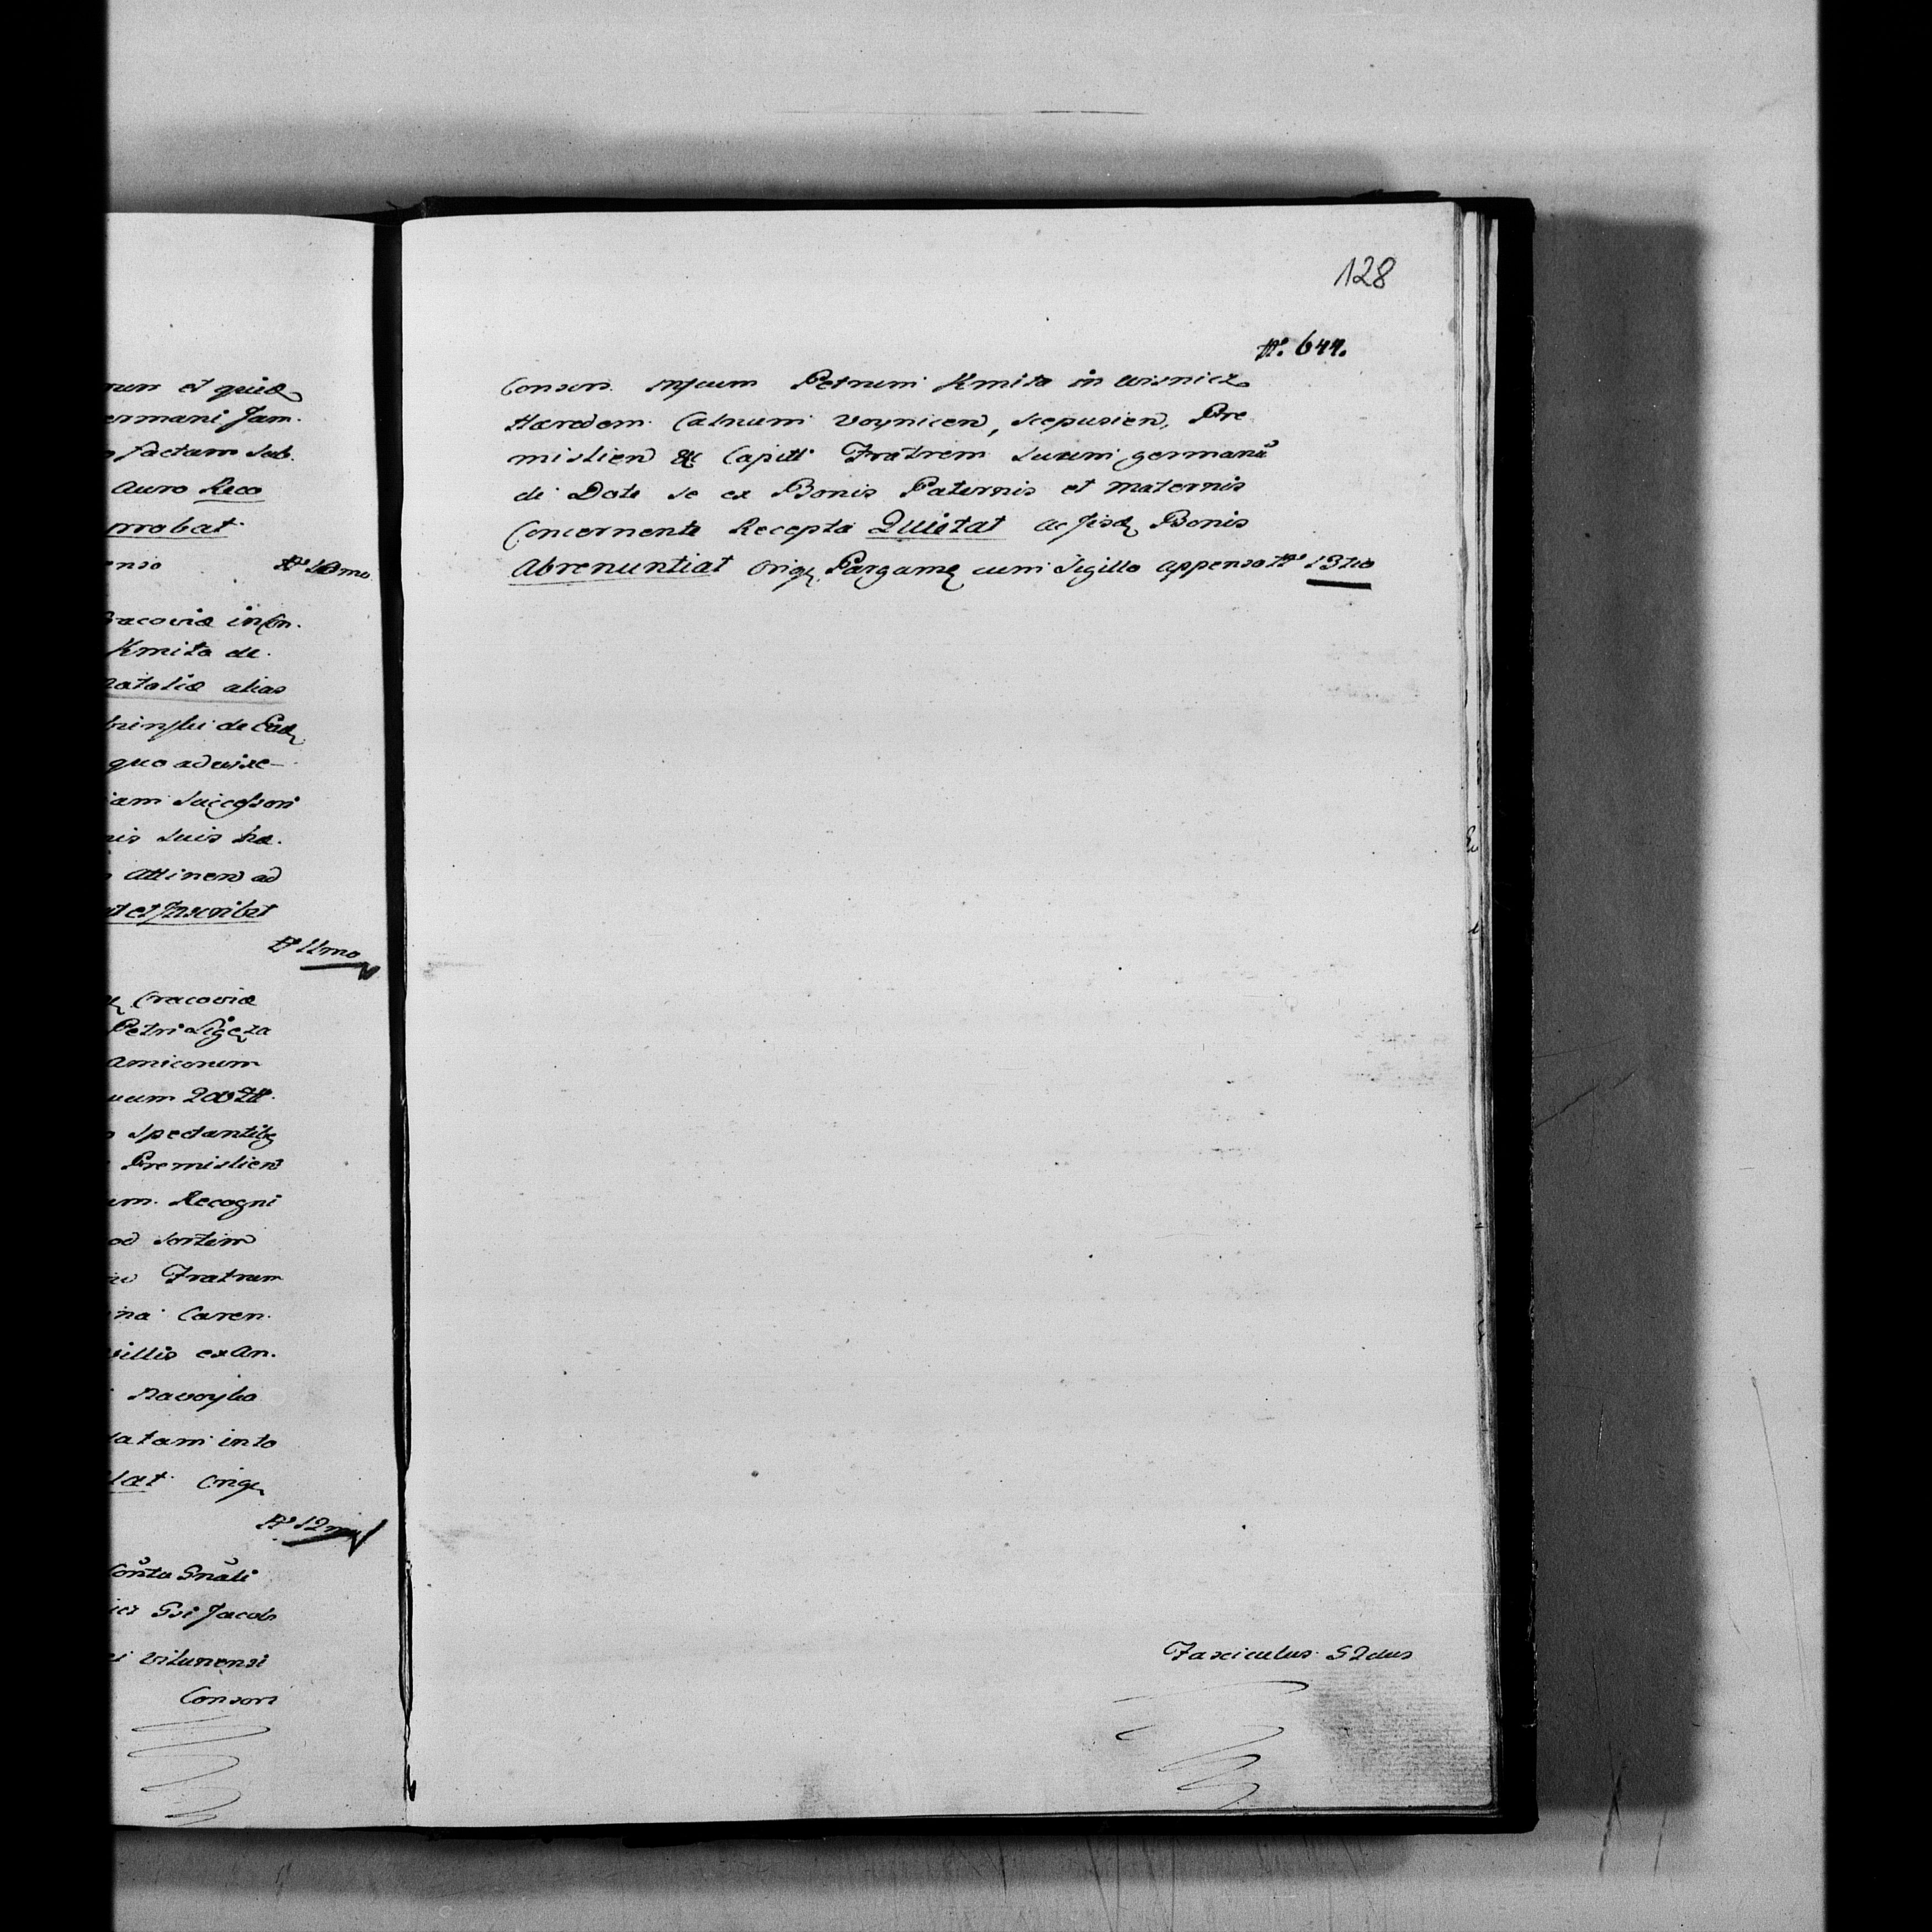 num et quid
ermani Jam.
factam Sub.
Auro Reco
probat
enso No 10mo
Cracoviæ in Cn.
Kmita de
Nataliæ alias
de Ead
quo advixe-
iam Successori
nis Suis hæ.
Attinen ad
at et Inscribit
No 11mo
Cracoviæ
Petri Ligęza
Amicorum
uum 200
Spectantib
Premislien
um. Recogni
ad Sortem
Fratrum
ina Caren.
villis ex An.
Navoyko
datam in to
tat Orig
No 12mo
Conta Gnali
Jacob
Vilunensi
Consors
128
No. 644.
Consors. Mfcum Petrum Kmita in Wisnicz
Hæredem. Catnum Voynicen, Scepusien, Pre
mislien &c Capitt Fratrem Suum germanũ
de Dote se ex Bonis Paternis et Maternis
Concernente Recepta Quietat ac Iisd Bonis
Abrenuntiat Orig Pargame cum Sigillo appenso No 13tio
Fasciculus 52dus